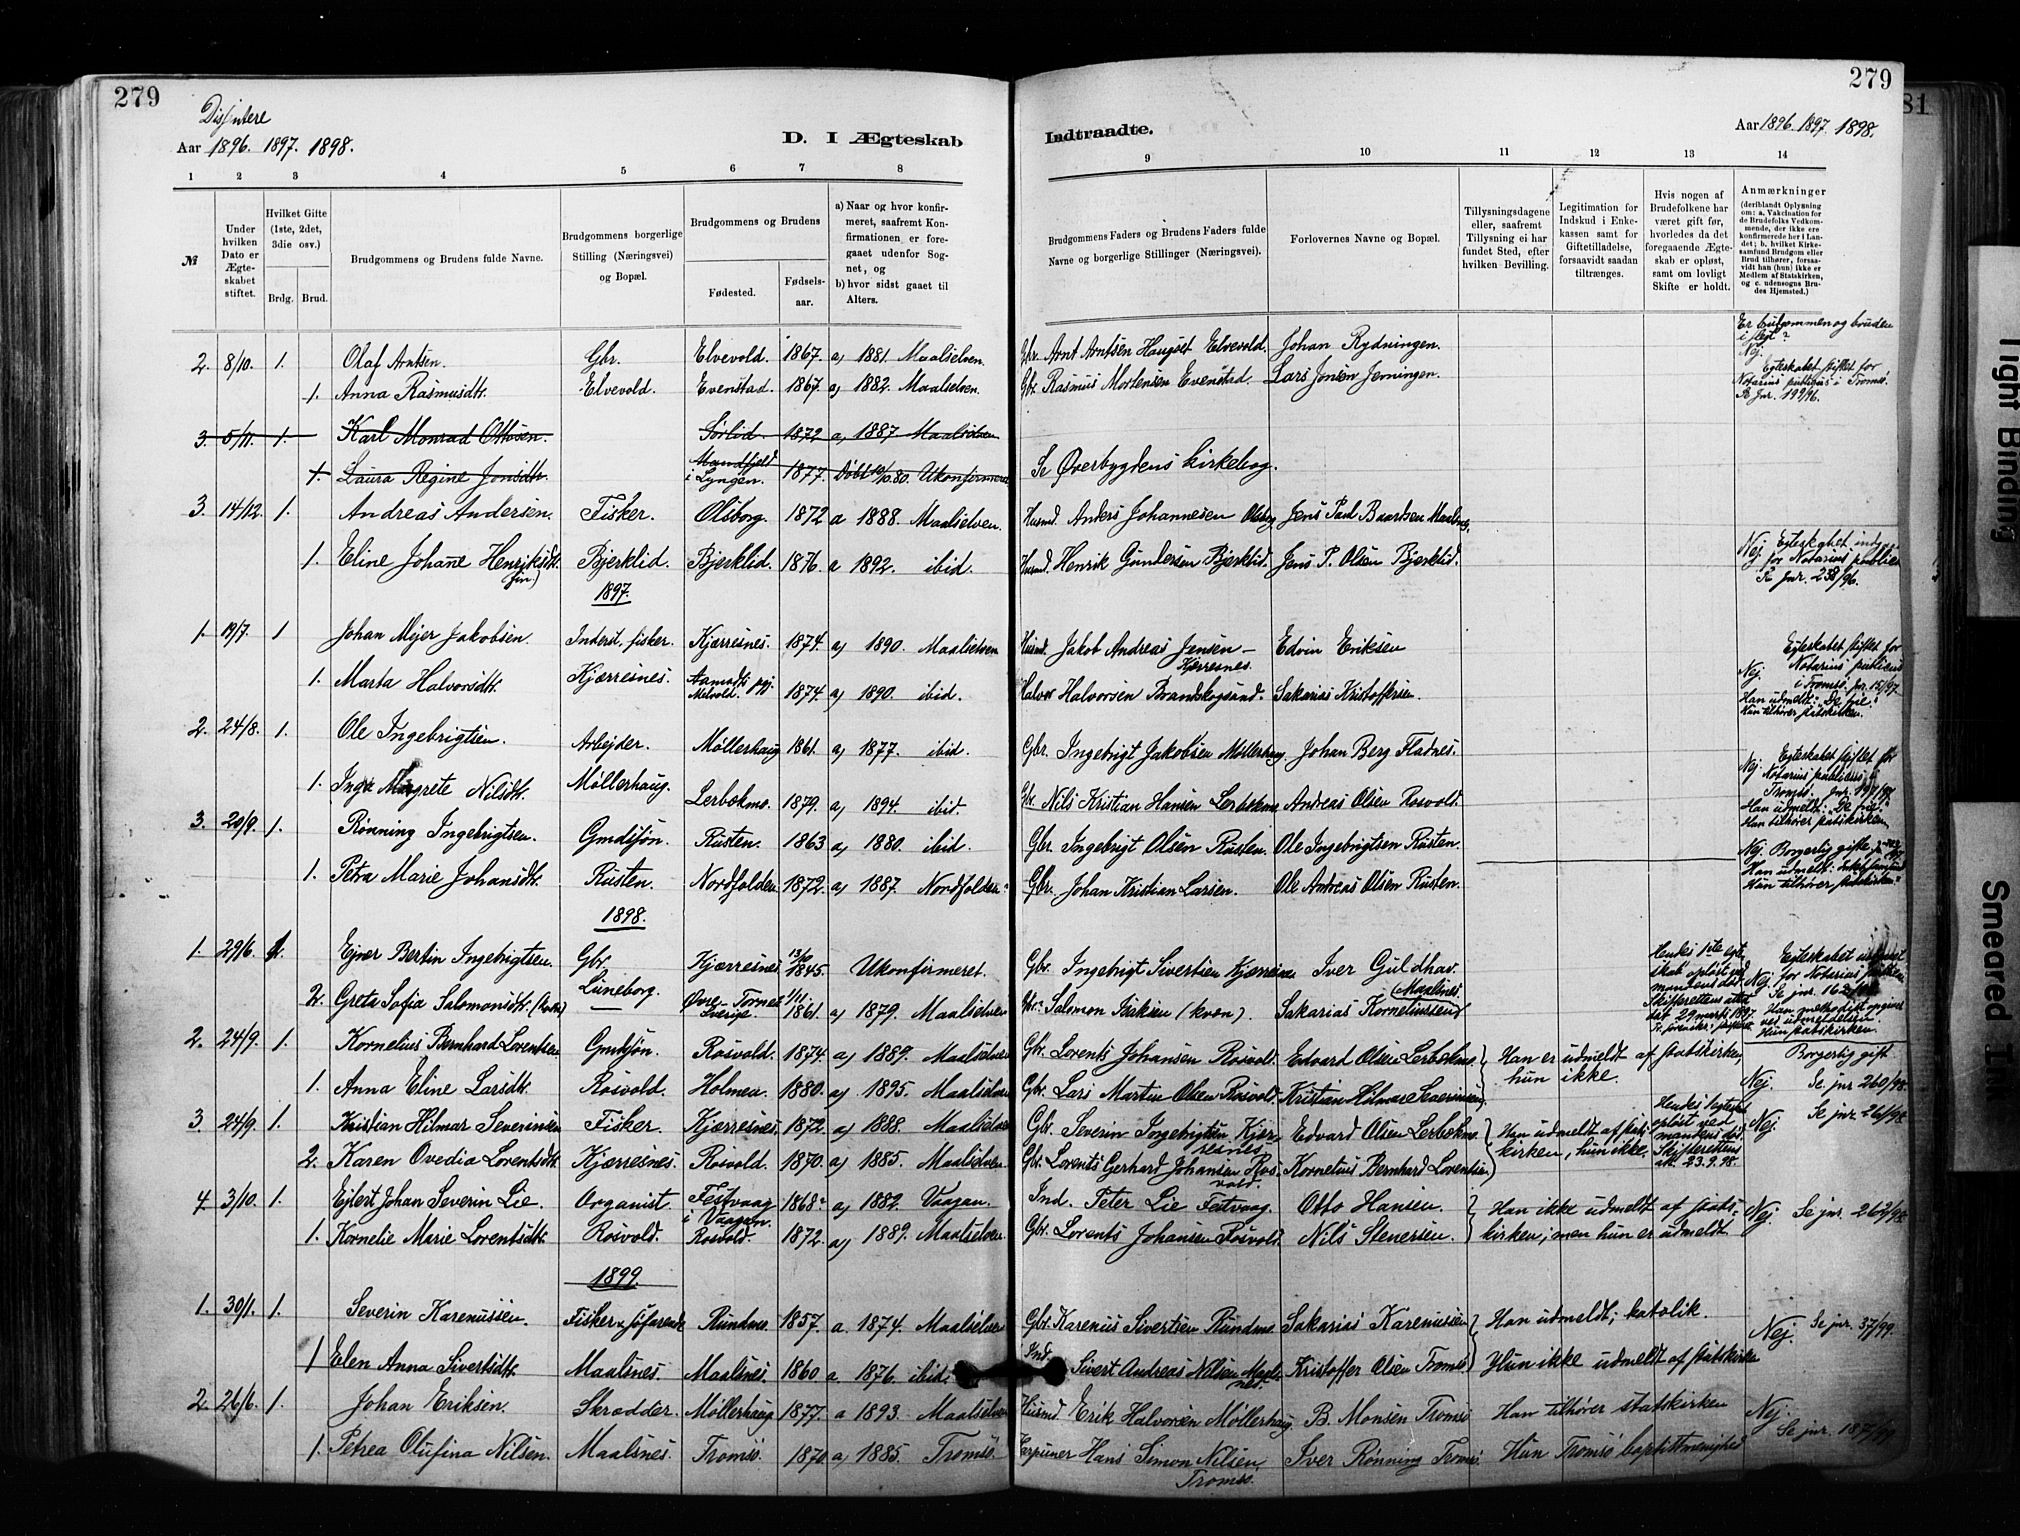 279
279
81
Dissentere
Aar 1896. 1897. 1898.
D. I Ægteskab
Indtraadte.
Aar 1896. 1897. 1898.
1 2 3 4 5 6 7 8 9 10 11 12 13 14
№
Under hvilken Dato er Ægteskabet stiftet.
Hvilket Gifte (1ste, 2det, 3die osv.)
Brdg. Brud.
Brudgommens og Brudens fulde Navne.
Brudgommens borgerlige Stilling (Næringsvei) og Bopæl.
Brudgommens og Brudens
Fødested. Fødselsaar.
a) Naar og hvor konfirmeret, saafremt Konfirmationen er foregaaet udenfor Sognet, og
b) hvor sidst gaaet til Alters.
Brudgommens Faders og Brudens Faders fulde Navne og borgerlige Stillinger (Næringsvei).
Forlovernes Navne og Bopæl.
Tillysningsdagene eller, saafremt Tillysning ei har fundet Sted, efter hvilken Bevilling.
Legitimation for Indskud i Enkekassen samt for Giftetilladelse, forsaavidt saadan tiltrænges.
Hvis nogen af Brudefolkene har været gift før, hvorledes da det foregaaende Ægteskab er opløst, samt om lovligt Skifte er holdt.
Anmærkninger (deriblandt Oplysning om: a. Vakcination for de Brudefolks Vedkommende, der ikke ere konfirmerede her i Landet; b. hvilket Kirkesamfund Brudgom eller Brud tilhører, forsaavidt han (hun) ikke er Medlem af Statskirken, og c. udensogns Brudes Hjemsted.)
2. 8/10. 1. Olaf Arntsen. Gbr. Elvevold. 1867. a) 1881 Maalselven. Gbr. Arnt Arntsen Haugset Elvevold. Johan Rydningen. Er brudgommen og bruden i slegt? Nej.
1. Anna Rasmusdtr. Elvevold. Evenstad. 1867. a) 1882. Maalselven. Gbr. Rasmus Mortensen Evenstad. Lars Jonsen Jerningen. Egteskabet stiftet for Notarius publicus i Tromsø. Se Jnr. 199/96.
3. 5/11. 1. Karl Monrad Ottosen. Sørlid. 1872 a) 1887 Maalselven
1. Laura Regine Jonsdtr. Mandfjeld i Lyngen. 1877. Døbt 10/10.80. Ukonfirmeret Se Øverbygdens kirkebog.
3. 14/12. 1. Andreas Andersen. Fisker. Olsborg. 1872 a 1888. Maalselven. Husmd. Anders Johannesen Olsborg Jens Paul Baardsen Maalsnes.
1. Eline Johane Henriksdtr. (fin) Bjerklid. Bjerklid. 1876. a 1892. ibid. Husmd. Henrik Gundersen Bjerklid. Jens P. Olsen Bjerklid. Nej. Egteskabet indg. for Notarius publicus Se Jnr. 258/96.
1897.
1. 19/7. 1 Johan Mejer Jakobsen. Inderst, fisker. Kjærresnes. 1874. a) 1890. Maalselven Husmd. Jakob Andreas Jensen – Kjærresnes. Edvin Eriksen
1. Marta Halvorsdtr. Kjærresnes. 1874. a) 1890. ibid. Halvor Halvorsen Brandskogsrad. Sakarias Kristoffersen. Nej. Egteskabet stiftet for Notarius publicus i Tromsø. Jnr. 151/97. Han udmeldt: "De frie." Hun tilhører statskirken.
2. 24/8. 1. Ole Ingebrigtsen. Arbejder. Møllerhaug 1861. a) 1877. ibid. Gbr. Ingebrigt Jakobsen Møllerhaug. Johan Berg Fladnes.
1. Inga Margrete Nilsdtr. Møllerhaug. Lerbekmo. 1879. a) 1894. ibid. Gbr. Nils Kristian Hansen Lerbekmo Andreas Olsen Rosvold. Nej. Egteskabet stiftet for Notarius publicus i Tromsø. Han udmeldt: "De frie." Hun tilhører statskirken.
3. 20/9. 1. Rønning Ingebrigtsen. Gmdssøn. Rusten. 1863 a) 1880. ibid. Gbr. Ingebrigt Olsen Rusten. Ole Ingebrigtsen Rusten.
1. Petra Marie Johansdtr. Rusten. Nordfolden 1872. a) 1887. Nordfolden. Gbr. Johan Kristian Larsen. Ole Andreas Olsen Rusten. Nej. Borgerlig gifte Han udmeldt: Hun tilhører statskirken.
1898.
1. 29/6. 1. Ejner Bertin Ingebrigtsen. Gbr. Kjærresnes 13/10 1845. Ukonfirmeret. Gbr. Ingebrigt Sivertsen Kjærresnes Iver Guldhav.
2. Greta Sofia Salomonsdtr. (kvæn) Lüneborg. Øvre-Torneå Sverige. 1/11. 1861. a) 1879. Maalselven Gbr. Salomon Isaksen (kvæn). Sakarias Korneliussen Maalsnes. Hendes 1ste egteskab opløst ved mandens død. Nej. Egteskabet for Notarius Se jnr. Han methodist Hun statskirken.
2. 24/9. 1. Kornelius Bernhard Lorentsen Gmdssøn. Rosvold. 1874. a) 1889. Maalselven Gbr. Lorents Johansen Rosvold. Edvard Olsen Lerbekmo. Han er udmeldt af statskirken, hun ikke. Borgerlig gift
1. Anna Eline Larsdtr. Rosvold. Holmen. 1880. a) 1895. Maalselven Gbr. Lars Martin Olsen Rosvold. Kristian Hilmar Severinsen. Nej. Se jnr 260/98.
3. 24/9. 1. Kristian Hilmar Severinsen Fisker. Kjærresnes. 1872. a) 1888. Maalselven Gbr. Severin Ingebrigtsen Kjærresnes Edvard Olsen Lerbekmo. Han udmeldt af statskirken, hun ikke. Hendes 1egteskab opløst ved mandens død. Skifterettens att. 23.9.98. Nej. Se jnr. 261/98.
2. Karen Ovedia Lorentsdtr. Kjærresnes. Rosvold. 1870. a) 1885. Maalselven Gbr. Lorents Gerhard Johansen Rosvold. Kornelius Bernhard Lorentsen
4. 3/10. 1. Ejlert Johan Severin Lie. Organist Festvaag i Vaagan. 1868. a) 1882. Vaagan. Ind. Peter Lie Festvaag. Otto Hansen. Han ikke udmeldt af statskirken; men hun er udmeldt Nej. Se jnr. 262/98.
1. Kornelie Marie Lorentsdtr. Rosvold. Rosvold. 1872. a) 1889. Maalselven Gbr. Lorents Johansen Rosvold. Nils Stenersen.
1899.
1. 30/1. 1. Severin Karenussen. Fisker & søfarende Rundmo. 1857. a. 1874. Maalselven Gbr. Karenus Sivertsen Rundmo Sakarias Karenussen Han udmeldt; katolik. Nej. Se jnr. 37/99.
1 Elen Anna Sivertsdtr. Maalsnes. Maalsnes. 1860 a. 1876. ibid. Ind. Sivert Andreas Nilsen Maalsnes. Kristoffer Olsen Tromsø Hun ikke udmeldt af statskirken
2. 26/6. 1. Johan Eriksen. Skrædder. Møllerhaug 1877. a 1893. Maalselven Husmd. Erik Halvorsen Møllerhaug. B. Monsen Tromsø Han tilhører statskirken Nej
1. Petrea Olufina Nilsen. Maalsnes. Tromsø. 1870. a) 1885. Tromsø. Harpuner Hans Simon Nilsen, Tromsø. Iver Rønning Tromsø. Hun Tromsø baptistmenighed Se jnr. 187/99.
Tight Binding
Smeared Ink